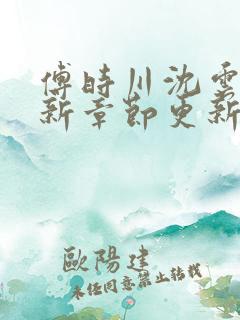 傅時川沈雲
新章節更新
歐陽建
未經同意禁止轉載